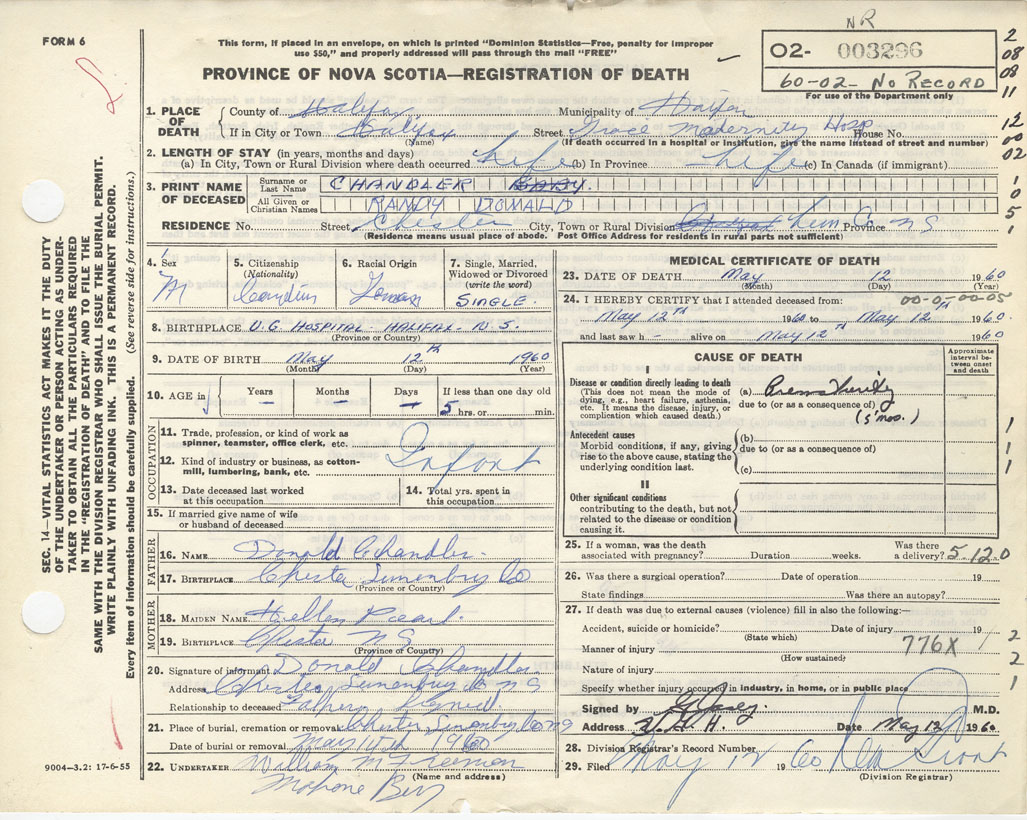 FORM 6
This form, if placed in an envelope, on which is printed "Dominion Statistics—Free, penalty for improper
use $50," and properly addressed will pass through the mail "FREE"
NR
O2- 003296
60-02- No RECORD
For use of the Department only
2
08
08
11
12
00
02
1
0
5
1
PROVINCE OF NOVA SCOTIA—REGISTRATION OF DEATH
1. PLACE OF DEATH
County of Halifax
Municipality of
If in City or Town Halifax
(Name)
Street Grace Maternity Hosp House No.
(If death occurred in a hospital or institution, give the name instead of street and number)
2. LENGTH OF STAY (in years, months and days)
(a) In City, Town or Rural Division where death occurred life (b) In Province life (c) In Canada (if immigrant)
3. PRINT NAME OF DECEASED
Surname or Last Name CHANDLER BABY.
All Given or Christian Names RANDY DONALD
RESIDENCE No. Street Chester City, Town or Rural Division Halifax Lun Co Province NS
(Residence means usual place of abode. Post Office Address for residents in rural parts not sufficient)
4. Sex
M
5. Citizenship
(Nationality)
Canadian
6. Racial Origin
German
7. Single, Married,
Widowed or Divorced
(write the word)
SINGLE.
8. BIRTHPLACE HOSPITAL - HALIFAX - N.S.
(Province or Country)
9. DATE OF BIRTH May 12th 1960
(Month) (Day) (Year)
10. AGE in
Years
—
Months
—
Days
—
If less than one day old
5 hrs. or min.
OCCUPATION
11. Trade, profession, or kind of work as
spinner, teamster, office clerk, etc.
12. Kind of industry or business, as cotton-
mill, lumbering, bank, etc.
Infant
13. Date deceased last worked
at this occupation
14. Total yrs. spent in
this occupation
15. If married give name of wife
or husband of deceased
FATHER
16. NAME Donald Chandler.
17. BIRTHPLACE Chester Lunenburg Co
(Province or Country)
MOTHER
18. MAIDEN NAME Hellen Pearl.
19. BIRTHPLACE Chester N S
(Province or Country)
20. Signature of informant Donald Chandler
Address Chester Lunenburg Co NS
Relationship to deceased Father Signed
21. Place of burial, cremation or removal Chester Lunenburg Co NS
Date of burial or removal May 14th 1960
22. UNDERTAKER William M Freeman
(Name and address)
Mahone Bay
MEDICAL CERTIFICATE OF DEATH
23. DATE OF DEATH May 12 1960
(Month) (Day) (Year)
24. I HEREBY CERTIFY that I attended deceased from: 00-0-00-05
May 12th 1960 to May 12 1960
and last saw h - alive on May 12th 1960
CAUSE OF DEATH
Approximate
interval be-
tween onset
and death
I
Disease or condition directly leading to death
(This does not mean the mode of
dying, e.g., heart failure, asthenia,
etc. It means the disease, injury, or
complication which caused death.)
(a) Prematurity
due to (or as a consequence of)
(5 mo.)
Antecedent causes
Morbid conditions, if any, giving
rise to the above cause, stating the
underlying condition last.
(b)
due to (or as a consequence of)
(c)
1
1
1
II
Other significant conditions
contributing to the death, but not
related to the disease or condition
causing it.
25. If a woman, was the death
associated with pregnancy? Duration weeks.
Was there
a delivery? 5.12.0
26. Was there a surgical operation? Date of operation 19
State findings Was there an autopsy?
27. If death was due to external causes (violence) fill in also the following:—
Accident, suicide or homicide? Date of injury 19
(State which)
Manner of injury 776X
(How sustained)
Nature of injury
Specify whether injury occurred in industry, in home, or in public place
1 2
2
1
Signed by M.D.
Address Date May 12 1960
28. Division Registrar's Record Number
29. Filed May 12 1960
(Division Registrar)
SEC. 14—VITAL STATISTICS ACT MAKES IT THE DUTY
OF THE UNDERTAKER OR PERSON ACTING AS UNDER-
TAKER TO OBTAIN ALL THE PARTICULARS REQUIRED
IN THE "REGISTRATION OF DEATH" AND TO FILE THE
SAME WITH THE DIVISION REGISTRAR WHO SHALL ISSUE THE BURIAL PERMIT.
WRITE PLAINLY WITH UNFADING INK. THIS IS A PERMANENT RECORD.
Every item of information should be carefully supplied. (See reverse side for instructions.)
9004—3.2: 17-6-55